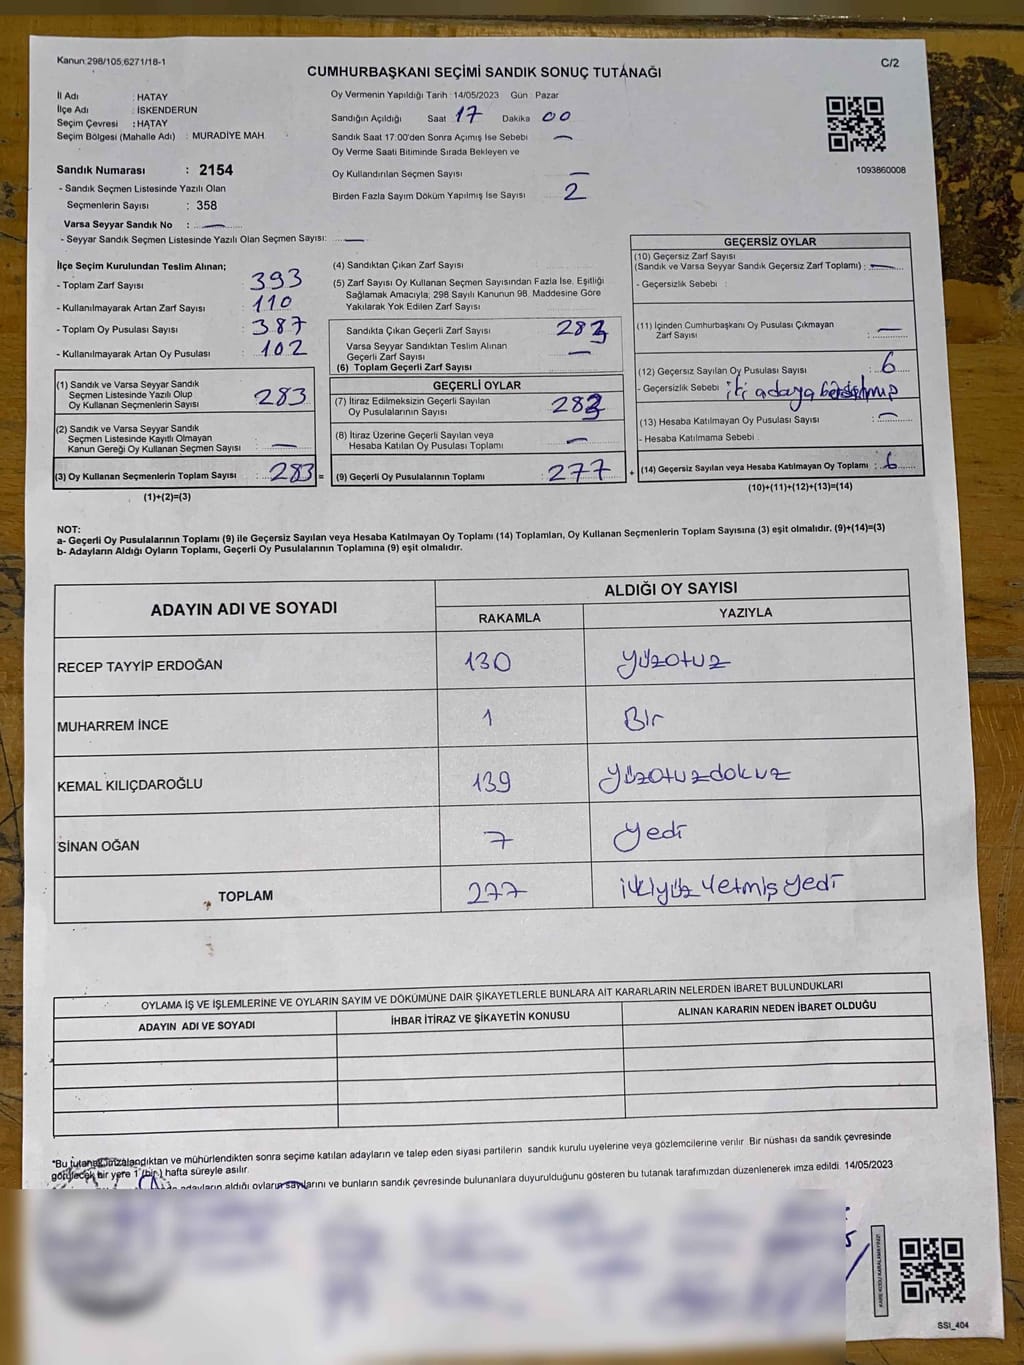 Kanun:298/105;6271/18-1
C/2
CUMHURBAŞKANI SEÇİMİ SANDIK SONUÇ TUTANAĞI
İl Adı : HATAY
İlçe Adı : İSKENDERUN
Seçim Çevresi : HATAY
Seçim Bölgesi (Mahalle Adı) : MURADİYE MAH
Sandık Numarası : 2154
- Sandık Seçmen Listesinde Yazılı Olan
Seçmenlerin Sayısı : 358
Varsa Seyyar Sandık No : —
- Seyyar Sandık Seçmen Listesinde Yazılı Olan Seçmen Sayısı: —
Oy Vermenin Yapıldığı Tarih :14/05/2023 Gün Pazar
Sandığın Açıldığı Saat 17 Dakika 00
Sandık Saat 17:00'den Sonra Açımış Ise Sebebi —
Oy Verme Saati Bitiminde Sırada Bekleyen ve
Oy Kullandırılan Seçmen Sayısı —
Birden Fazla Sayım Döküm Yapılmış İse Sayısı 2
1093860008
İlçe Seçim Kurulundan Teslim Alınan;
- Toplam Zarf Sayısı : 393
- Kullanılmayarak Artan Zarf Sayısı : 110
- Toplam Oy Pusulası Sayısı : 387
- Kullanılmayarak Artan Oy Pusulası : 102
(1) Sandık ve Varsa Seyyar Sandık
Seçmen Listesinde Yazılı Olup
Oy Kullanan Seçmenlerin Sayısı : 283
(2) Sandık ve Varsa Seyyar Sandık
Seçmen Listesinde Kayıtlı Olmayan
Kanun Gereği Oy Kullanan Seçmen Sayısı : —
(3) Oy Kullanan Seçmenlerin Toplam Sayısı : 283 =
(1)+(2)=(3)
(4) Sandıktan Çıkan Zarf Sayısı
(5) Zarf Sayısı Oy Kullanan Seçmen Sayısından Fazla İse, Eşitliği
Sağlamak Amacıyla; 298 Sayılı Kanunun 98. Maddesine Göre
Yakılarak Yok Edilen Zarf Sayısı
Sandıkta Çıkan Geçerli Zarf Sayısı 283
Varsa Seyyar Sandıktan Teslim Alınan
Geçerli Zarf Sayısı —
(6) Toplam Geçerli Zarf Sayısı
GEÇERLİ OYLAR
(7) İtiraz Edilmeksizin Geçerli Sayılan
Oy Pusulalarının Sayısı : 283
(8) İtiraz Üzerine Geçerli Sayılan veya
Hesaba Katılan Oy Pusulası Toplamı —
(9) Geçerli Oy Pusulalarının Toplamı : 277 +
GEÇERSİZ OYLAR
(10) Geçersiz Zarf Sayısı
(Sandık ve Varsa Seyyar Sandık Geçersiz Zarf Toplamı) : —
- Geçersizlik Sebebi :
(11) İçinden Cumhurbaşkanı Oy Pusulası Çıkmayan
Zarf Sayısı : —
(12) Geçersiz Sayılan Oy Pusulası Sayısı : 6
- Geçersizlik Sebebi : iki adaya
(13) Hesaba Katılmayan Oy Pusulası Sayısı : —
- Hesaba Katılmama Sebebi :
(14) Geçersiz Sayılan veya Hesaba Katılmayan Oy Toplamı : 6
(10)+(11)+(12)+(13)=(14)
NOT:
a- Geçerli Oy Pusulalarının Toplamı (9) ile Geçersiz Sayılan veya Hesaba Katılmayan Oy Toplamı (14) Toplamları, Oy Kullanan Seçmenlerin Toplam Sayısına (3) eşit olmalıdır. (9)+(14)=(3)
b- Adayların Aldığı Oyların Toplamı, Geçerli Oy Pusulalarının Toplamına (9) eşit olmalıdır.
ADAYIN ADI VE SOYADI
ALDIĞI OY SAYISI
RAKAMLA YAZIYLA
RECEP TAYYİP ERDOĞAN 130 yüzotuz
MUHARREM İNCE 1 Bir
KEMAL KILIÇDAROĞLU 139 yüzotuzdokuz
SİNAN OĞAN 7 yedi
TOPLAM 277 ikiyüz yetmiş yedi
OYLAMA İŞ VE İŞLEMLERİNE VE OYLARIN SAYIM VE DÖKÜMÜNE DAİR ŞİKAYETLERLE BUNLARA AİT KARARLARIN NELERDEN İBARET BULUNDUKLARI
ADAYIN ADI VE SOYADI İHBAR İTİRAZ VE ŞİKAYETİN KONUSU ALINAN KARARIN NEDEN İBARET OLDUĞU
*Bu tutanak imzalandıktan ve mühürlendikten sonra seçime katılan adayların ve talep eden siyasi partilerin sandık kurulu uyelerine veya gözlemcilerine verilir. Bir nüshası da sandık çevresinde
görülecek bir yere 1 (bir) hafta süreyle asılır.
adayların aldığı oyların sayılarını ve bunların sandık çevresinde bulunanlara duyurulduğunu gösteren bu tutanak tarafımızdan düzenlenerek imza edildi. 14/05/2023
SSI_404